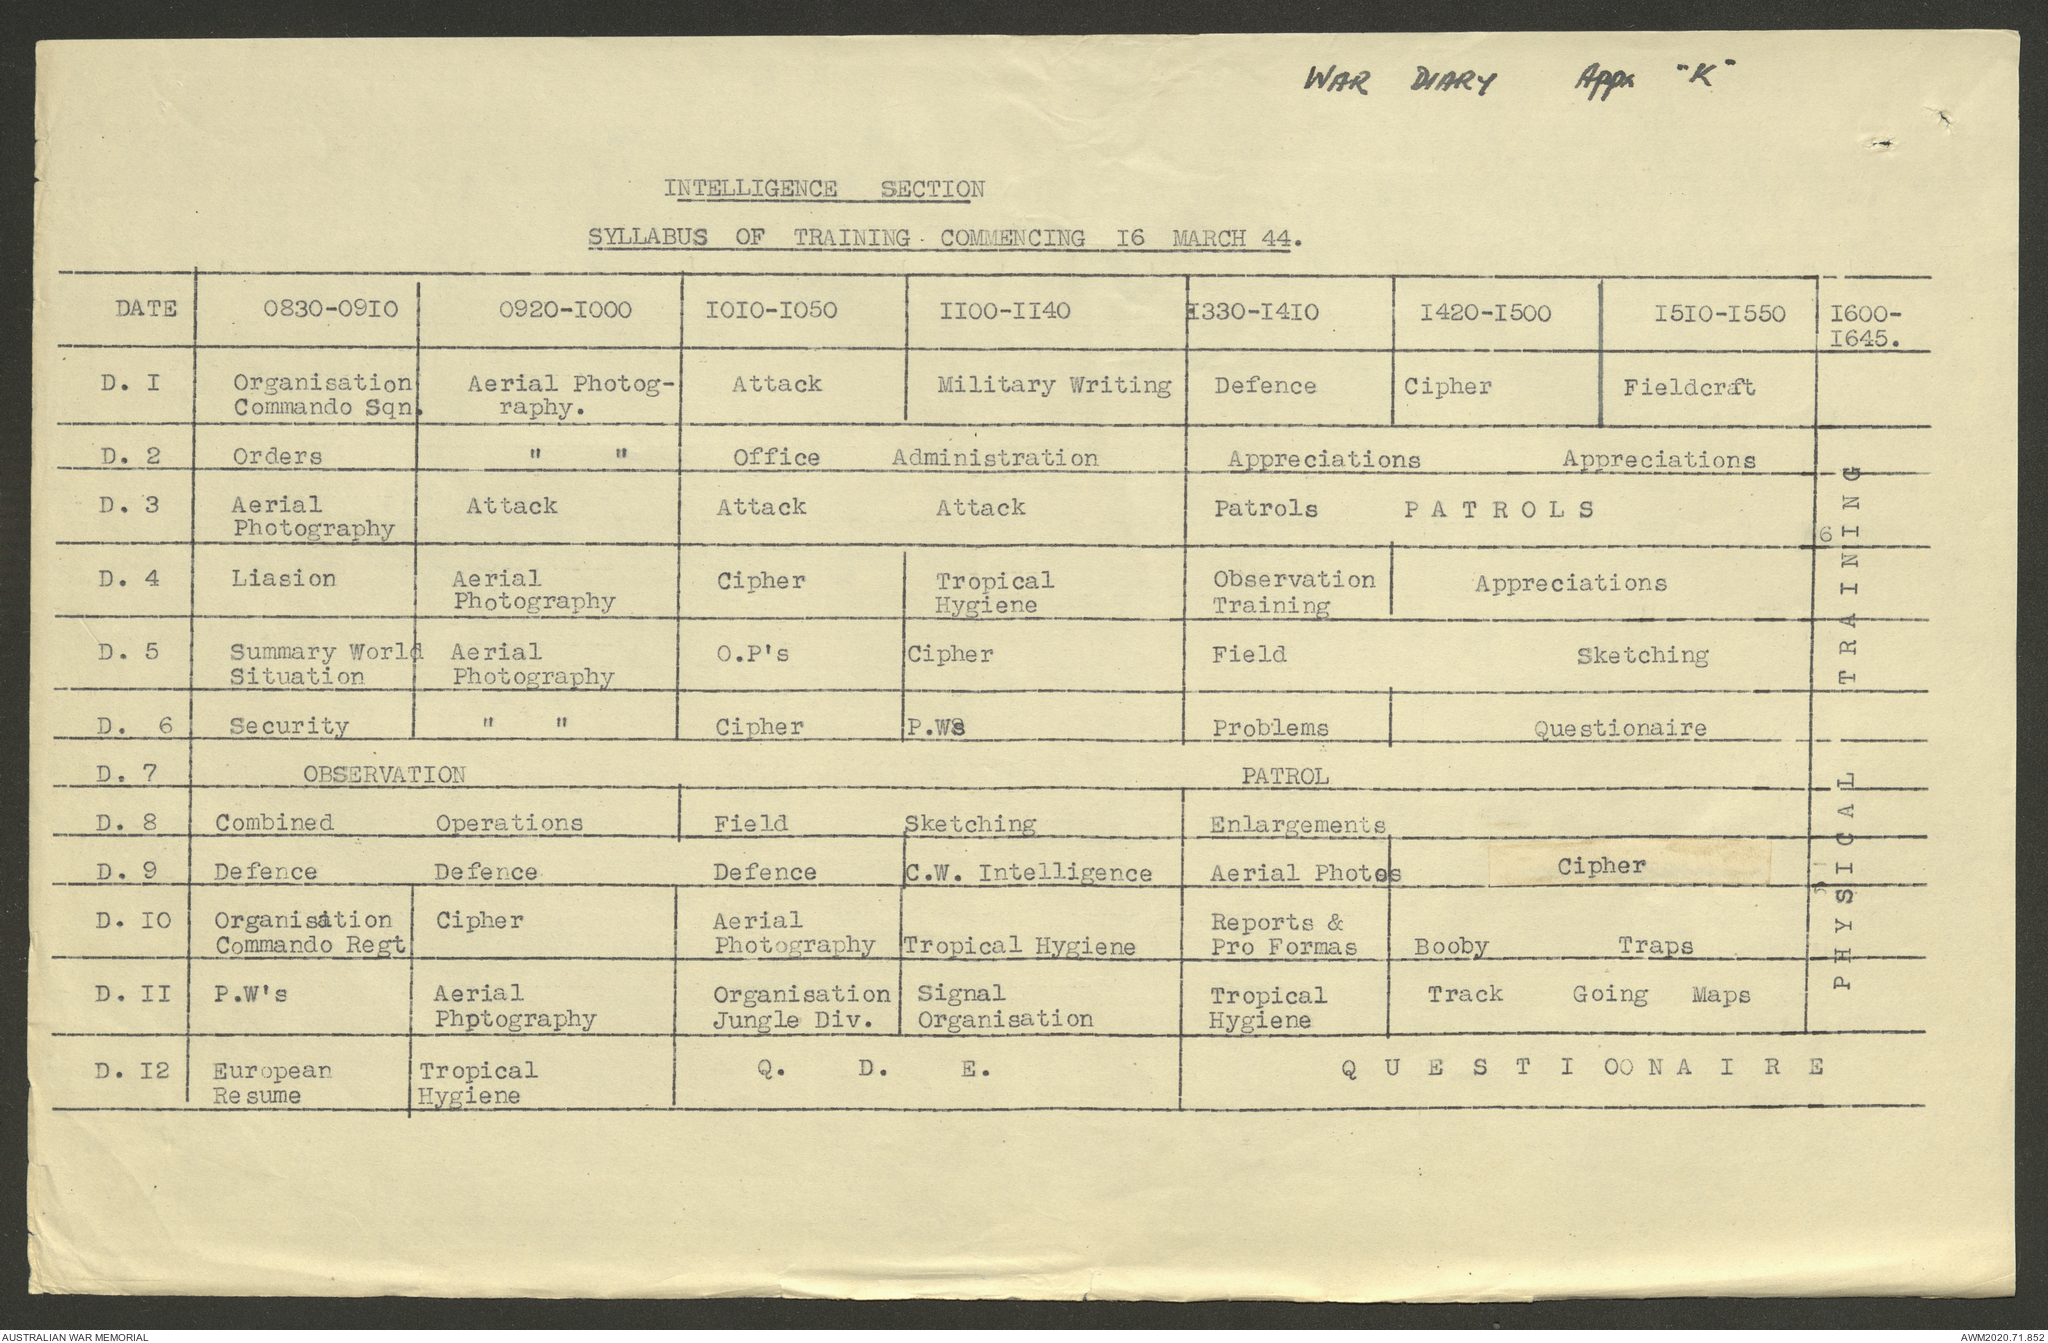 WAR DIARY Appx "K"
INTELLIGENCE SECTION
SYLLABUS OF TRAINING COMMENCING I6 MARCH 44.
DATE 0830-09I0 0920-I000 I0I0-I050 II00-II40 I330-I4I0 I420-I500 I5I0-I550 I600-
I645.
D. I Organisation Aerial Photog- Attack Military Writing Defence Cipher Fieldcraft
Commando Sqn. raphy.
D. 2 Orders " " Office Administration Appreciations Appreciations
D. 3 Aerial Attack Attack Attack Patrols P A T R O L S
Photography
6
D. 4 Liasion Aerial Cipher Tropical Observation Appreciations
Photography Hygiene Training
D. 5 Summary World Aerial O.P's Cipher Field Sketching
Situation Photography
D. 6 Security " " Cipher P.Ws Problems Questionaire
D. 7 OBSERVATION PATROL
D. 8 Combined Operations Field Sketching Enlargements
D. 9 Defence Defence Defence C.W. Intelligence Aerial Photos Cipher
5
D. I0 Organisation Cipher Aerial Reports &
Commando Regt Photography Tropical Hygiene Pro Formas Booby Traps
D. II P.W's Aerial Organisation Signal Tropical Track Going Maps
Phptography Jungle Div. Organisation Hygiene
D. I2 European Tropical Q. D. E. Q U E S T I O O N A I R E
Resume Hygiene
P H Y S I C A L T R A I N I N G
AUSTRALIAN WAR MEMORIAL
AWM2020.71.852